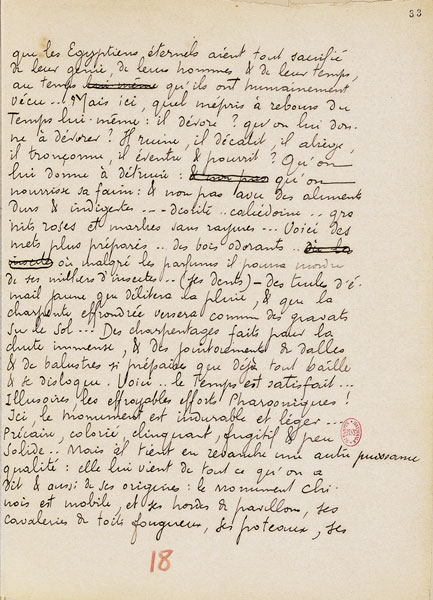 33
que les Egyptiens, éternels aient tout sacrifié
de leur génie, de leurs hommes & de leur temps,
au temps lui-même qu'ils ont humainement
vécu... Mais ici, quel mépris à rebours du
Temps lui-même : il dévore ? qu'on lui don-
ne à dévorer ? Il ruine, il décatit, il abrège,
il tronçonne, il éventre & pourrit ? Qu'on
lui donne à détruire : & non pas qu'on
nourrisse sa faim : & non pas avec des aliments
durs & indigestes --- calcédoine .. gra
nits roses et marbres sans rayures... Voici des
mets plus préparés .. des bois odorants ..
où malgré les parfums il pourra mordre
de ses milliers d'insectes --- (ses dents) - Des tuiles d'é-
mail jaune que délitera la pluie, & que la
charpente effondrée versera comme des gravats
sur le sol --- Des charpentages faits pour la
chute immense, & des jointoiements de dalles
& de balustres si préparés que déjà tout bâille
& se disloque. Voici .. le Temps est satisfait ...
Illusoires les effroyables efforts Pharaoniques !
Ici, le monument est indurable et léger ---
Précaire, colorié, clinquant, fugitif & peu
Solide .. Mais il tient en revanche une autre puissance
qualité : elle lui vient de tout ce qu'on a
dit & aussi de ses origines : le monument Chi-
nois est mobile, et ses hordes de pavillons, ses
cavaleries de toits fougueux, ses poteaux, ses
18